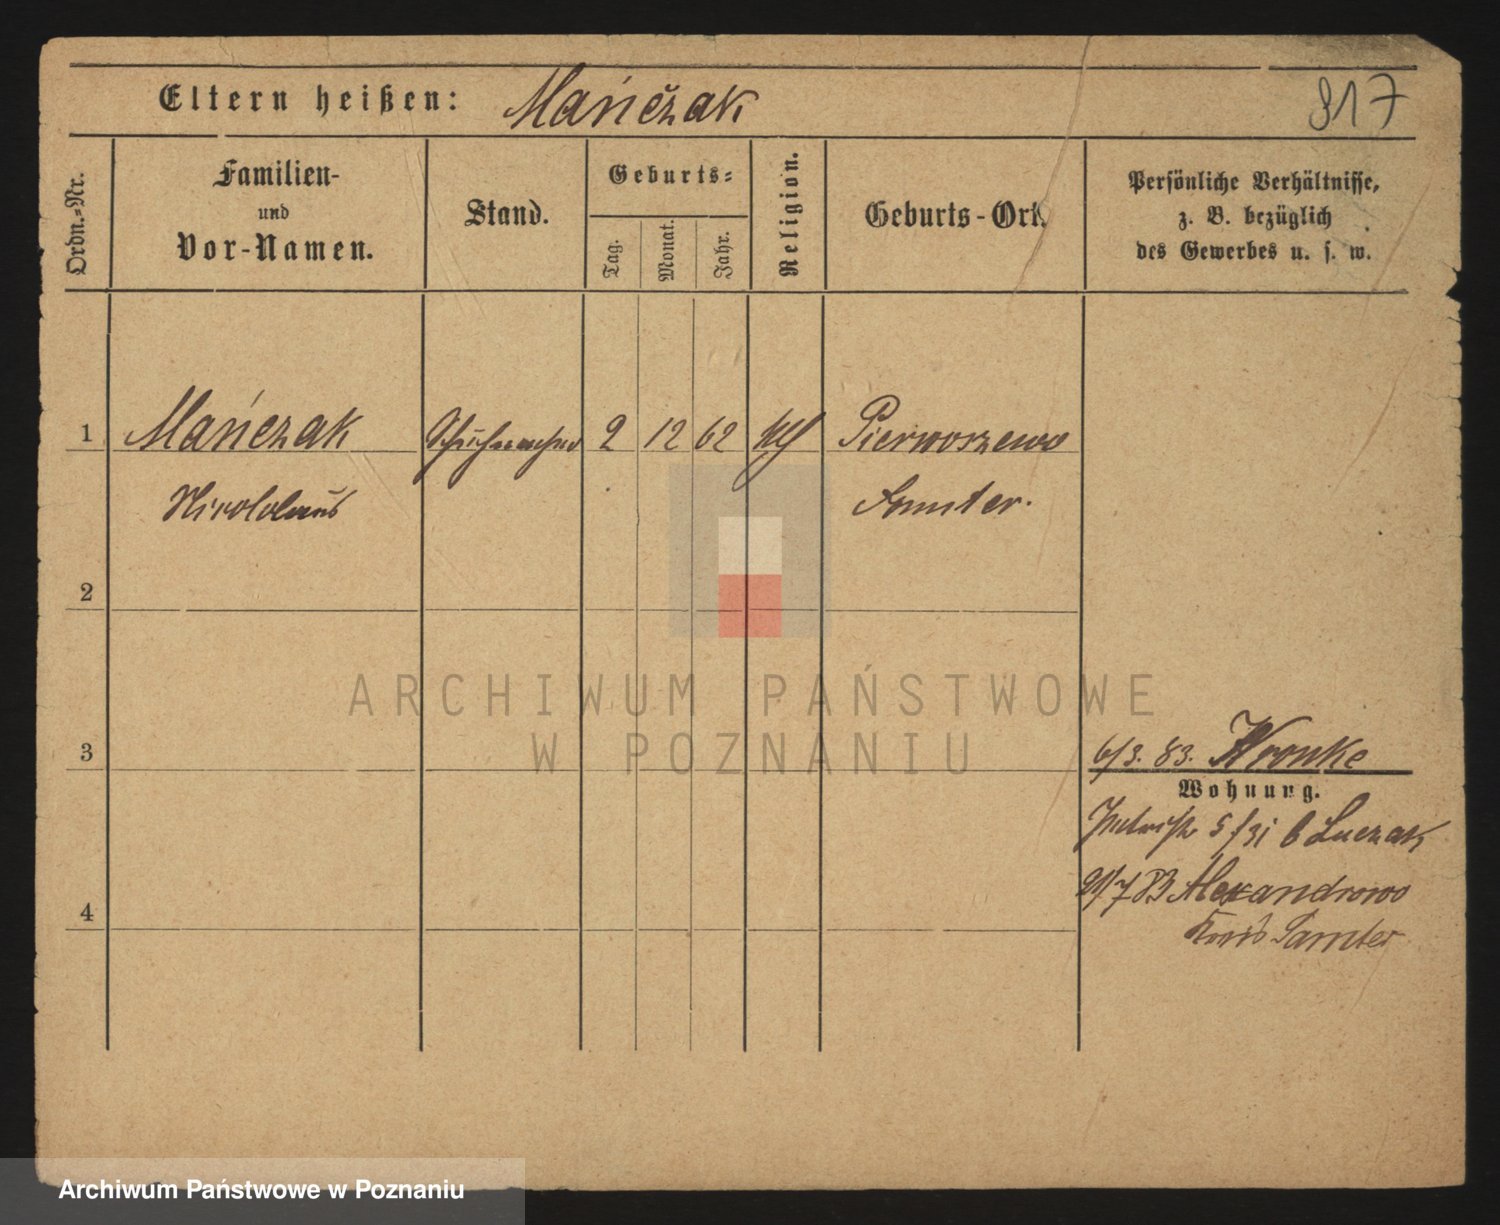 Eltern heißen: Mańczak
817
Ordn.-Nr.
Familien-
und
Vor-Namen.
Stand.
Geburts-
Tag.
Monat.
Jahr.
Religion.
Geburts-Ort.
Persönliche Verhältnisse,
z. B. bezüglich
des Gewerbes u. s. w.
1 Mańczak Schuhmacher 2 12 62 kth Pierwoszewo
Nikolaus Samter.
2
ARCHIWUM PAŃSTWOWE
W POZNANIU
3
6/3. 83. Wronke
Wohnung.
5/31 b Luczak
21/7 83 Alexandrowo
Kreis Samter
4
Archiwum Państwowe w Poznaniu